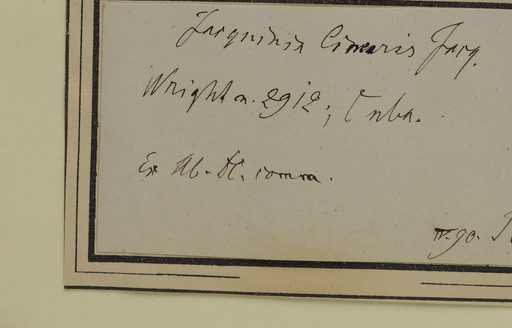 Jacquinia linearis Jacq.
Wright n. 2912; Cuba.
Ex Hb. DC. comm.
90.